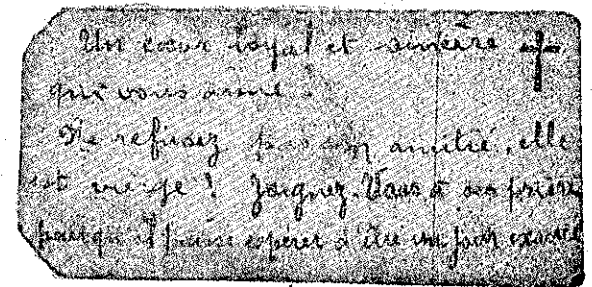 Un cœur loyal et sincère
qui vous aime.
Ne refusez pas son amitié, elle
est vierge ! Joignez-Vous à ses prières
pour qu'il puisse espérer d'être un jour exaucé